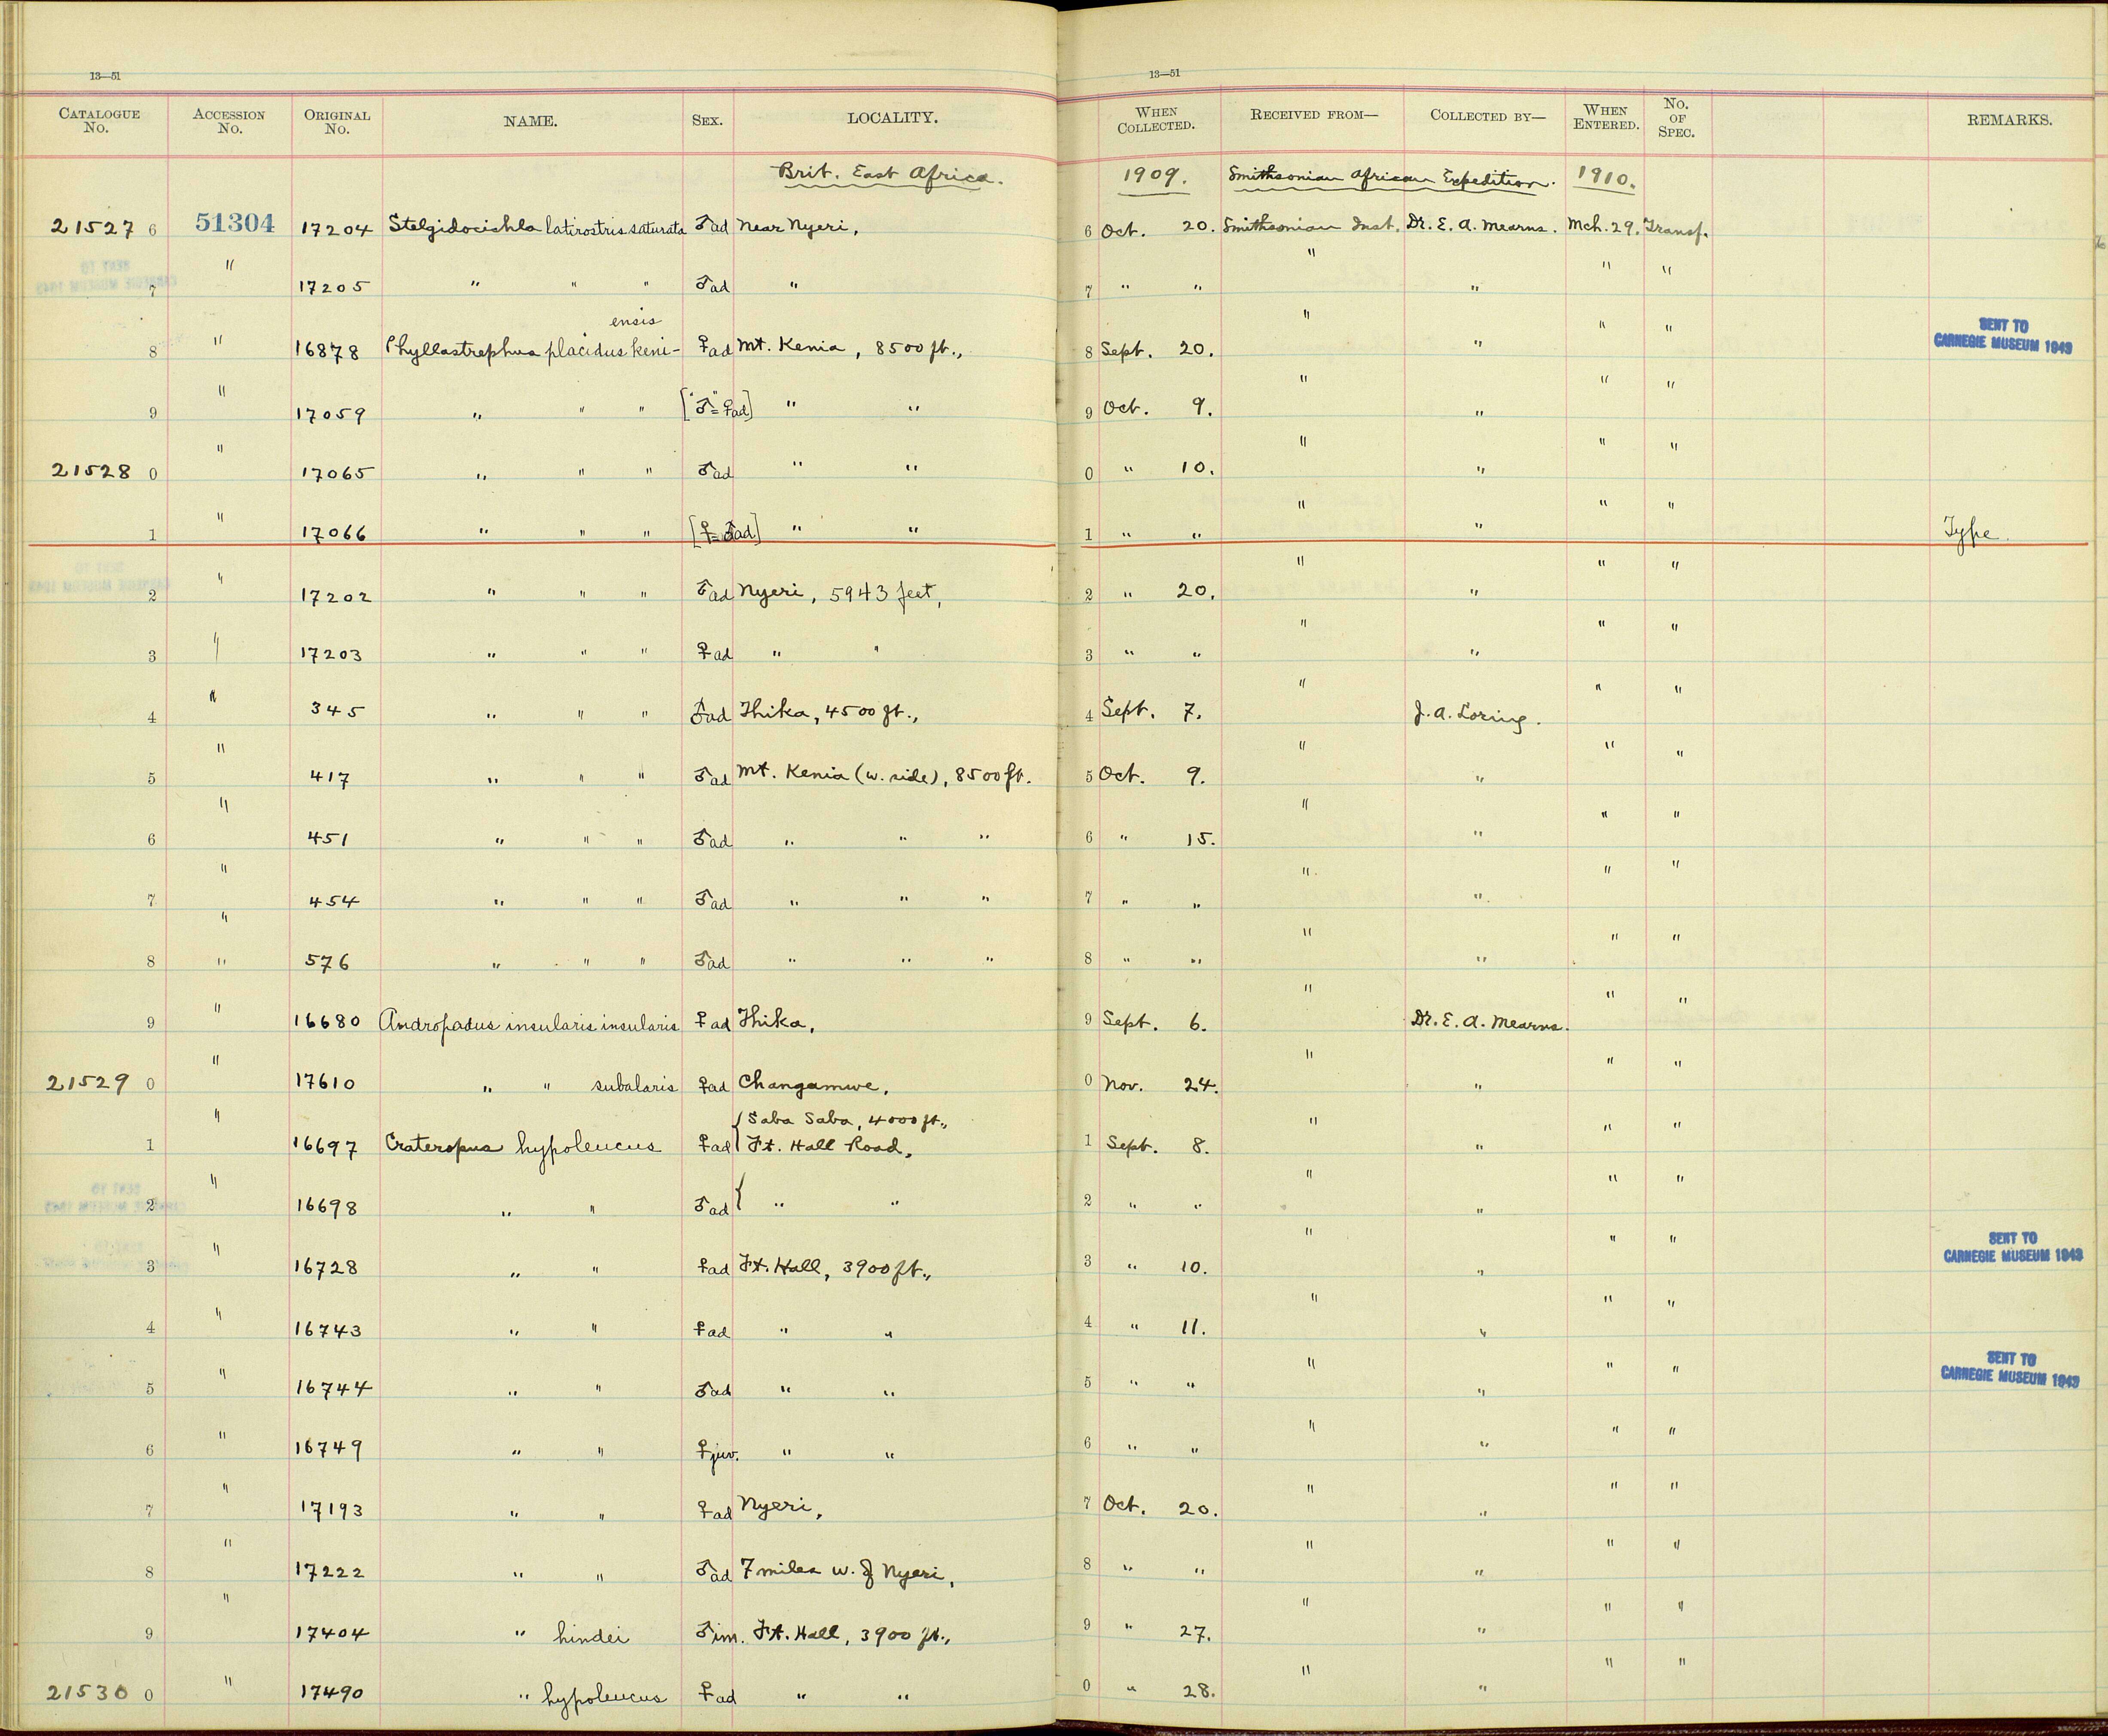 13—51 13—51
CATALOGUE No. ACCESSION No. ORIGINAL No. NAME. SEX. LOCALITY. WHEN COLLECTED. RECEIVED FROM— COLLECTED BY— WHEN ENTERED. No. OF SPEC. REMARKS.
Brit. East Africa. 1909. Smithsonian African Expedition. 1910.
21527 6 51304 17204 Stelgidocichla latirostris saturata ♂ad Near Nyeri, 6 Oct. 20. Smithsonian Inst. Dr. E. A. Mearns. Mch. 29. Transf.
7 " 17205 " " " ♂ad " 7 " " " " " "
ensis
8 " 16878 Phyllastrephus placidus keni- ♀ad Mt. Kenia, 8500 ft., 8 Sept. 20. " " " " SENT TO CARNEGIE MUSEUM 1943
9 " 17059 " " " ["♂"=♀ad] " " 9 Oct. 9. " " " "
21528 0 " 17065 " " " ♂ad " " 0 " 10. " " " "
1 " 17066 " " " [♀=♂ad] " " 1 " " " " " " Type.
2 " 17202 " " " ♂ad Nyeri, 5943 feet, 2 " 20. " " " "
3 " 17203 " " " ♀ad " " 3 " " " " " "
4 " 345 " " " ♂ad Thika, 4500 ft., 4 Sept. 7. " J. A. Loring. " "
5 " 417 " " " ♂ad Mt. Kenia (w. side), 8500 ft. 5 Oct. 9. " " " "
6 " 451 " " " ♂ad " " " 6 " 15. " " " "
7 " 454 " " " ♂ad " " " 7 " " " " " "
8 " " 576 " " " ♂ad " " " 8 " " " " " "
9 " 16680 Andropadus insularis insularis ♀ad Thika, 9 Sept. 6. " Dr. E. A. Mearns. " "
21529 0 " 17610 " " subalaris ♀ad Changamwe, 0 Nov. 24. " " " "
1 " 16697 Crateropus hypoleucus ♀ad { Saba Saba, 4000 ft., Ft. Hall Road, 1 Sept. 8. " " " "
2 " 16698 " " ♂ad { " " 2 " " " " " "
3 " 16728 " " ♀ad Ft. Hall, 3900 ft., 3 " 10. " " " " SENT TO CARNEGIE MUSEUM 1943
4 " 16743 " " ♀ad " " 4 " 11. " " " "
5 " 16744 " " ♂ad " " 5 " " " " " " SENT TO CARNEGIE MUSEUM 1943
6 " 16749 " " ♀juv. " " 6 " " " " " "
7 " 17193 " " ♀ad Nyeri, 7 Oct. 20. " " " "
8 " 17222 " " ♂ad 7 miles w. of Nyeri, 8 " " " " " "
9 " 17404 " hindei ♂im. Ft. Hall, 3900 ft., 9 " 27. " " " "
21530 0 " 17490 " hypoleucus ♀ad " " 0 " 28. " " " "